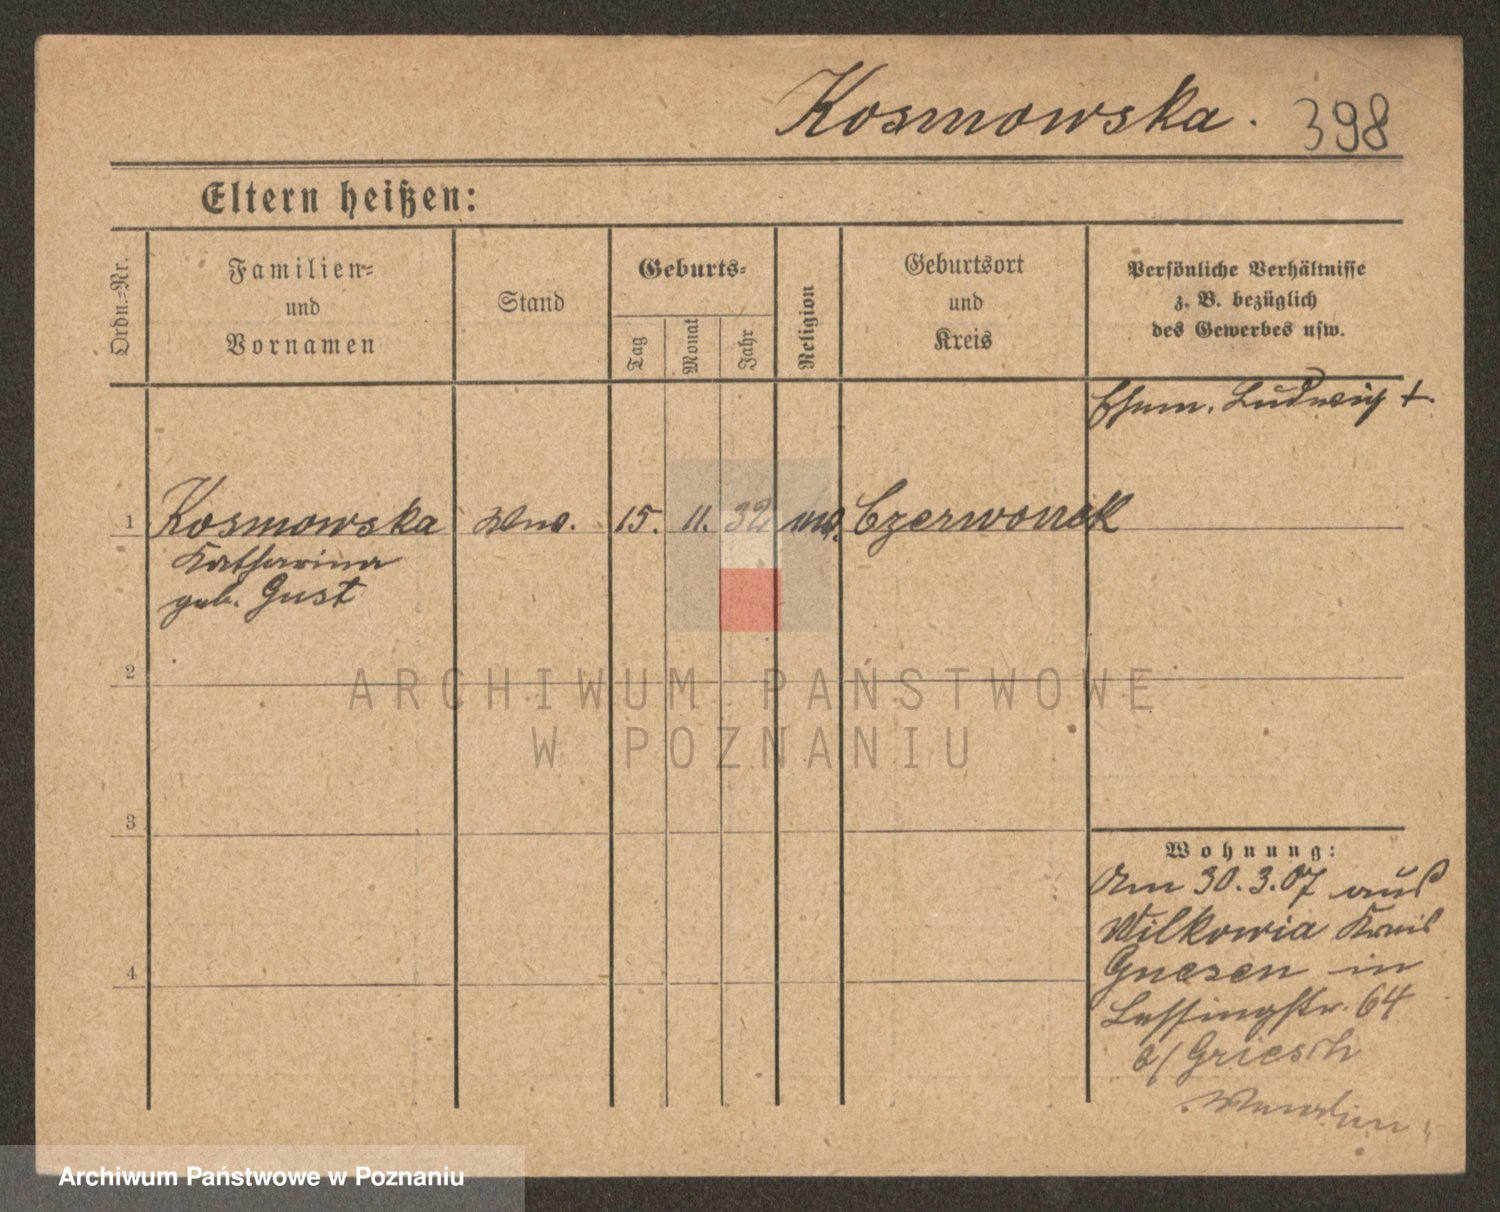 Kosmowska. 398
Eltern heißen:
Ordn.-Nr.
Familien-
und
Vornamen
Stand
Geburts-
Tag
Monat
Jahr
Religion
Geburtsort
und
Kreis
Persönliche Verhältnisse
z. B. bezüglich
des Gewerbes usw.
Ehem. Ludwig †.
1 Kosmowska Wwe. 15. 11. 32 Czerwonak
Katharina
geb. Gust
2
3
4
Wohnung:
Am 30.3.07 aus
Wilkowia Kreis
Gnesen in
Lessingstr. 64
b/ Griesch
ARCHIWUM PAŃSTWOWE
W POZNANIU
Archiwum Państwowe w Poznaniu